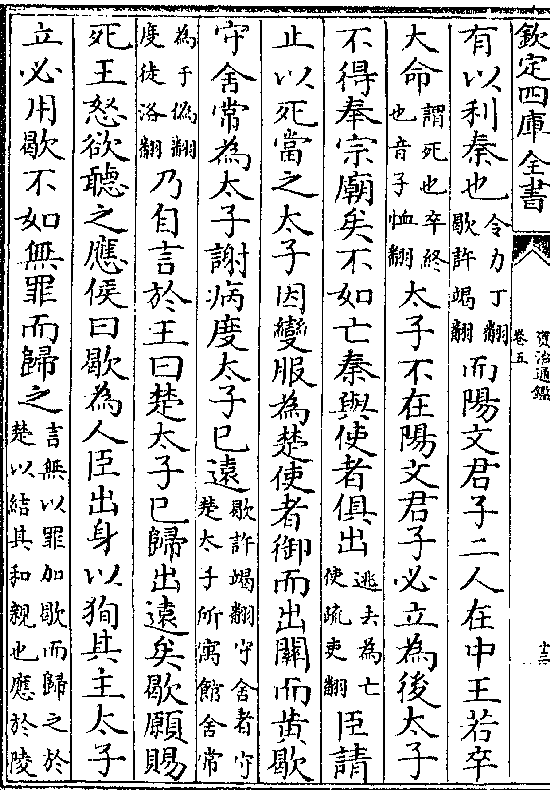 欽定四庫全書
資治通鑑
卷五
十三
有以利秦也令力丁翻歇許竭翻而陽文君子二人在中王若卒
大命謂死也卒終也音子恤翻太子不在陽文君子必立為後太子
不得奉宗廟矣不如亡秦與使者俱出逃去為亡使疏吏翻臣請
止以死當之太子因變服為楚使者御而出關而黃歇
守舍常為太子謝病度太子已遠歇許竭翻守舍者守楚太子所寓館舍常
為于偽翻度徒洛翻乃自言於王曰楚太子已歸出遠矣歇願賜
死王怒欲聽之應侯曰歇為人臣出身以狥其主太子
立必用歇不如無罪而歸之言無以罪加歇而歸之於楚以結其和親也應於陵